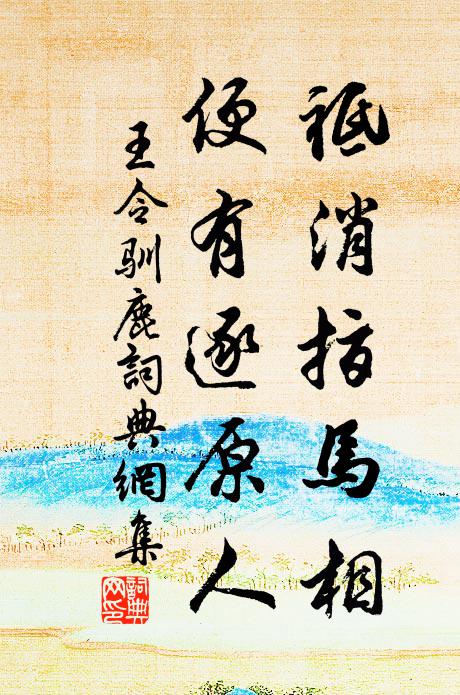 祗消指馬相
便有逐原人
王令馴鹿詞典網集
詞典
網印